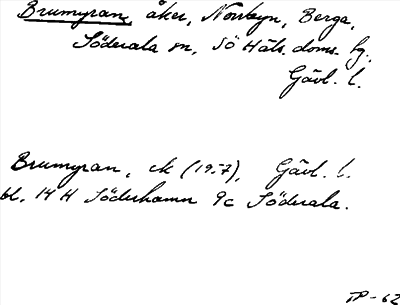 Brumyran, åker, Norrbyn, Berga,
Söderala sn, Sö Häls. doms. fg.
Gävl. l.
Brumyran, ek (1957), Gävl. l.
bl. 14 H Söderhamn 9c Söderala.
TP-62